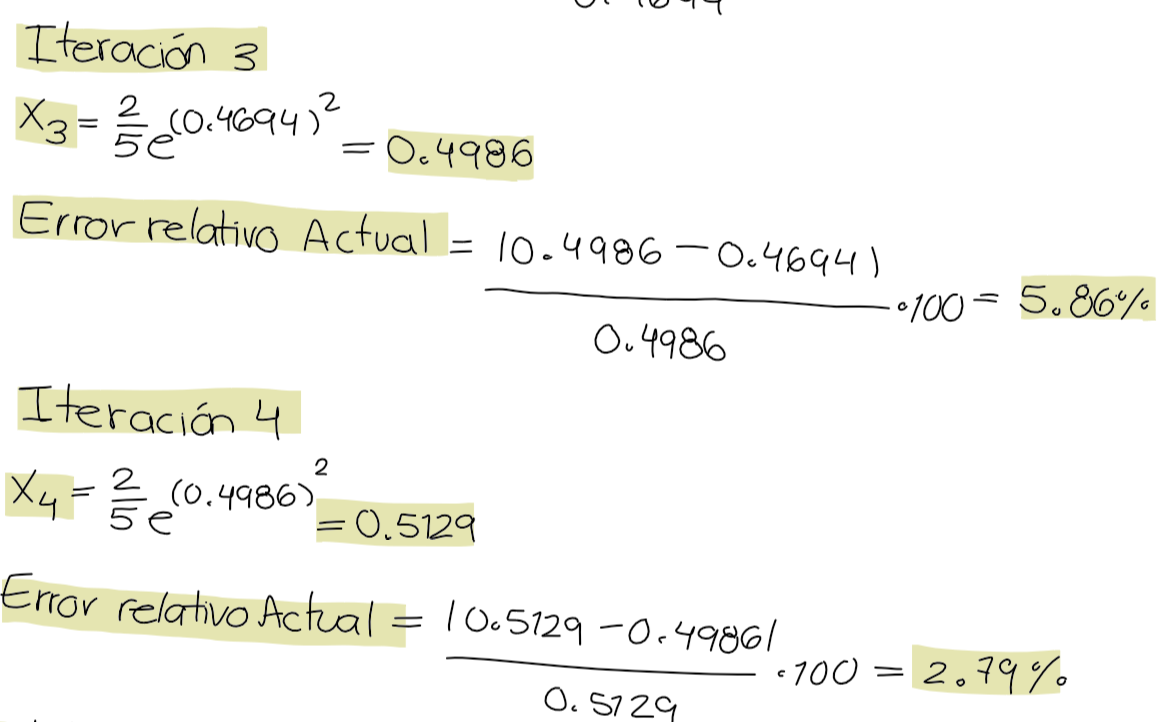 Iteración 3
X₃ = 2/5 e^(0.4694)² = 0.4986
Error relativo Actual = |0.4986 - 0.4694| / 0.4986 · 100 = 5.86%
Iteración 4
X₄ = 2/5 e^(0.4986)² = 0.5129
Error relativo Actual = |0.5129 - 0.4986| / 0.5129 · 100 = 2.79%